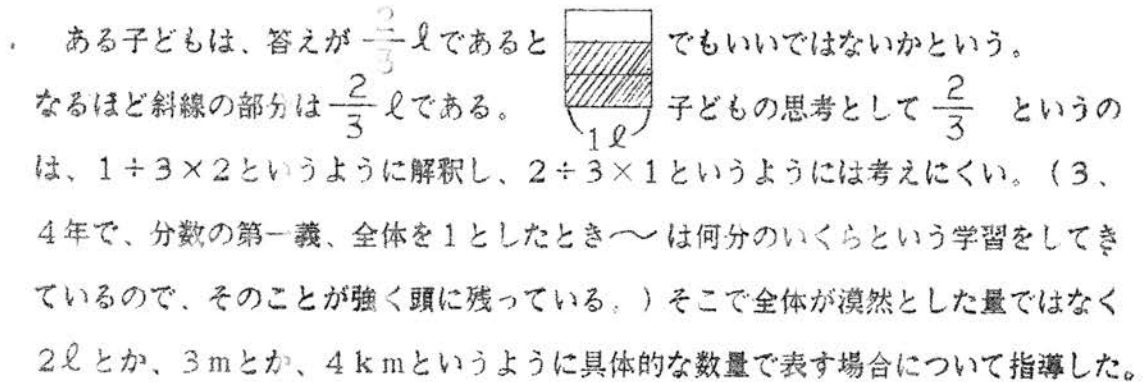 ある子どもは、答えが2/3ℓであると でもいいではないかという。
なるほど斜線の部分は2/3ℓである。 1ℓ 子どもの思考として2/3 というの
は、1÷3×2というように解釈し、2÷3×1というようには考えにくい。(3、
4年で、分数の第一義、全体を1としたとき〜は何分のいくらという学習をしてき
ているので、そのことが強く頭に残っている。)そこで全体が漠然とした量ではなく
2ℓとか、3mとか、4kmというように具体的な数量で表す場合について指導した。